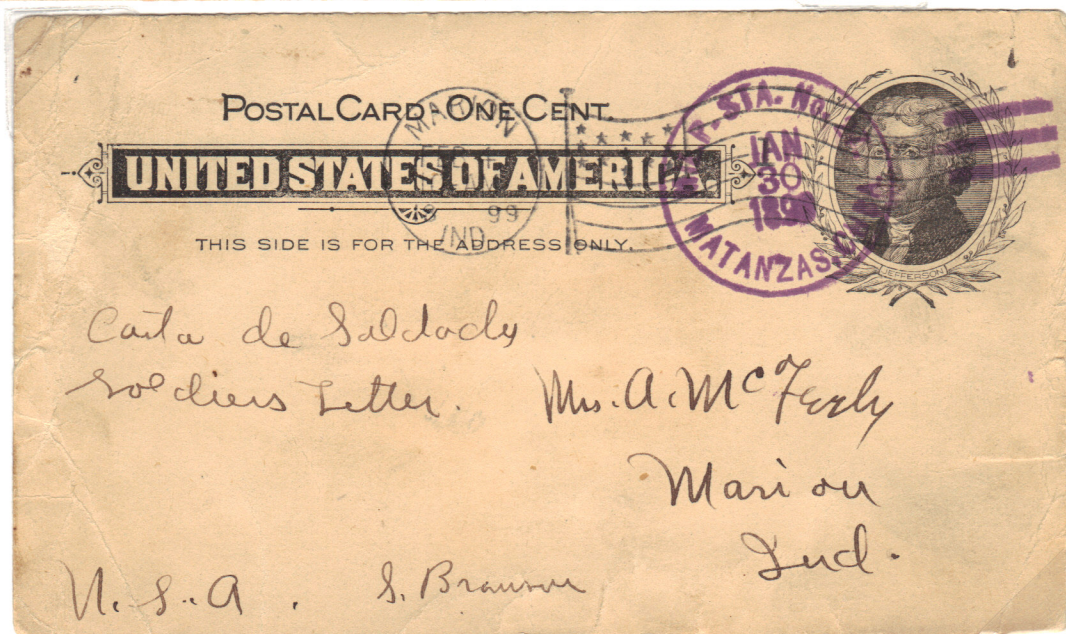 POSTAL CARD. ONE CENT.
UNITED STATES OF AMERICA
THIS SIDE IS FOR THE ADDRESS ONLY.
JEFFERSON
MARION
IND
99
P. STA. No.
JAN
30
MATANZAS, CUBA.
Carta de Soldado
Soldiers Letter.
Mrs. A. McFeely
Marion
Ind.
U.S.A.
S. Branson